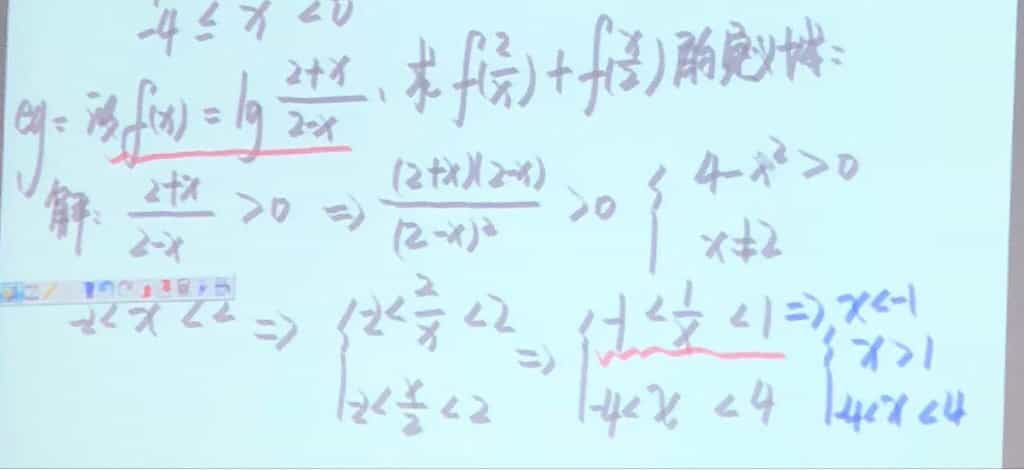 -4 ≤ x < 0
eg: 设 f(x) = lg (2+x)/(2-x), 求 f(2/x) + f(x/2) 的定义域:
解: (2+x)/(2-x) > 0 => ((2+x)(2-x))/((2-x)²) > 0 { 4-x² > 0
x ≠ 2
-2 < x < 2 => { -2 < 2/x < 2 => { -1 < 1/x < 1 => { x < -1
x > 1
-2 < x/2 < 2 -4 < x < 4 -4 < x < 4